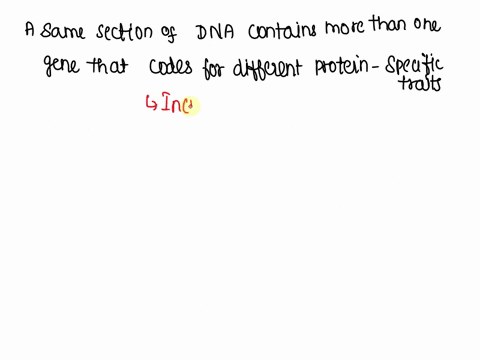 A same section of DNA contains more than one
gene that codes for different protein - specific
traits
↳ Inc